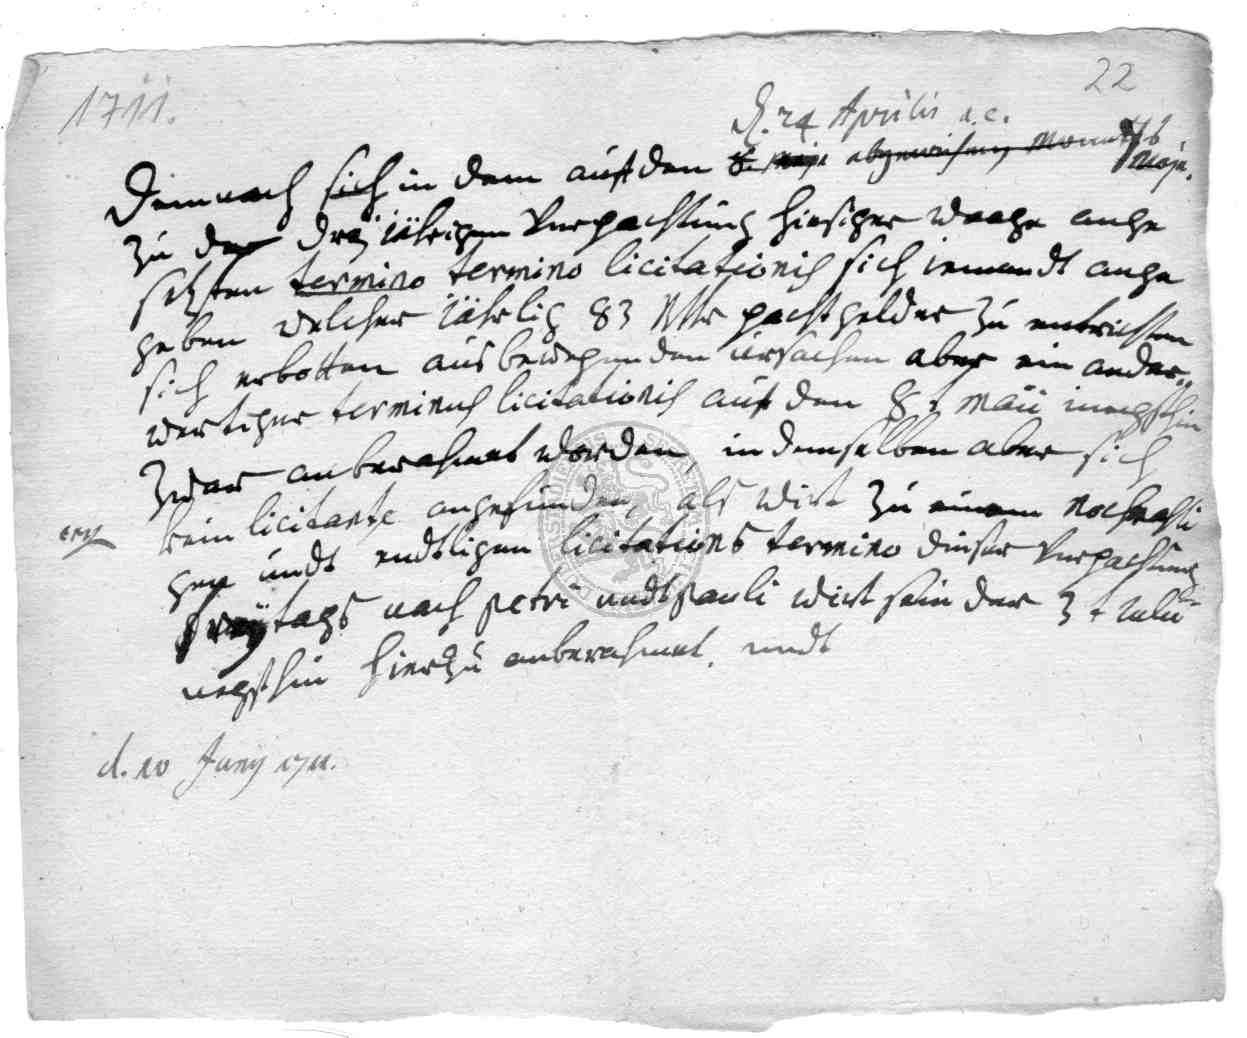 22
1711.
d. 24 Aprilis a.c.
Demnach sich in dem auf den 8. Maji abgewichenen Monaths Maji.
zu der drey jährigen Verpachtung hiesiger waage ange
setzten termino termino licitationis sich iemandt ange
geben welcher jährlig 83 Rthr pachtgelder zu entrichten
sich erbotten aus bewegenden ursachen aber ein ander„
wertiger terminus licitationis auf den 8t. Maii
zwar anberahmet worden, in demselben aber sich
kein licitante angefunden, als wirt zu einem nochmahli
gen undt endtligen licitations termino dieser Verpachtung
freÿtags nach Petri undt Pauli wirt sein der 3t Julii
negsthin hierzu anberahmet. undt
d. 10 Junij 1711.